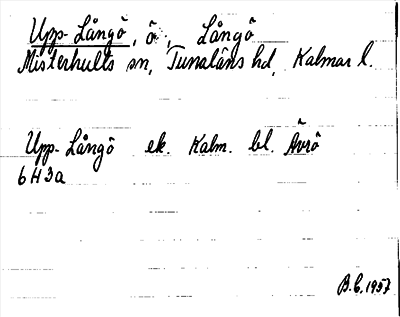 Upp-Långö, ö, Långö
Misterhults sn, Tunaläns hd, Kalmar l.
Upp-Långö ek. Kalm. bl. Ävrö
6H3a
B.C. 1957